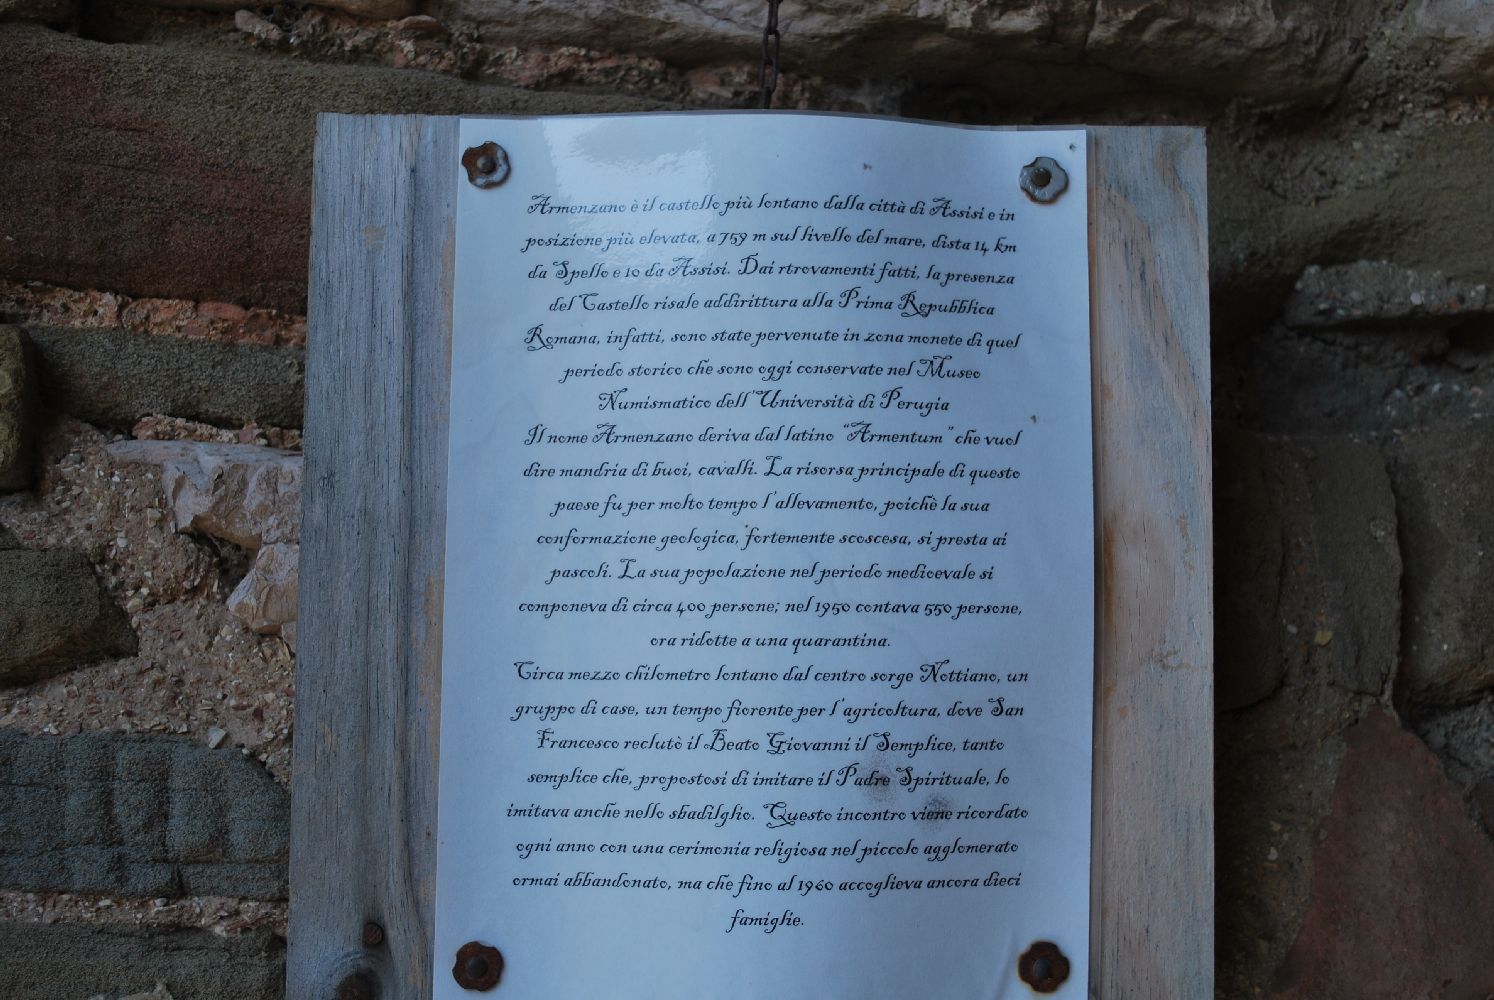 Armenzano è il castello più lontano dalla città di Assisi e in
posizione più elevata, a 759 m sul livello del mare, dista 14 km
da Spello e 10 da Assisi. Dai rtrovamenti fatti, la presenza
del Castello risale addirittura alla Prima Repubblica
Romana, infatti, sono state pervenute in zona monete di quel
periodo storico che sono oggi conservate nel Museo
Numismatico dell'Università di Perugia
Il nome Armenzano deriva dal latino "Armentum" che vuol
dire mandria di buoi, cavalli. La risorsa principale di questo
paese fu per molto tempo l'allevamento, poichè la sua
conformazione geologica, fortemente scoscesa, si presta ai
pascoli. La sua popolazione nel periodo medioevale si
componeva di circa 400 persone; nel 1950 contava 550 persone,
ora ridotte a una quarantina.
Circa mezzo chilometro lontano dal centro sorge Nottiano, un
gruppo di case, un tempo fiorente per l'agricoltura, dove San
Francesco reclutò il Beato Giovanni il Semplice, tanto
semplice che, propostosi di imitare il Padre Spirituale, lo
imitava anche nello sbadilglio. Questo incontro viene ricordato
ogni anno con una cerimonia religiosa nel piccolo agglomerato
ormai abbandonato, ma che fino al 1960 accoglieva ancora dieci
famiglie.